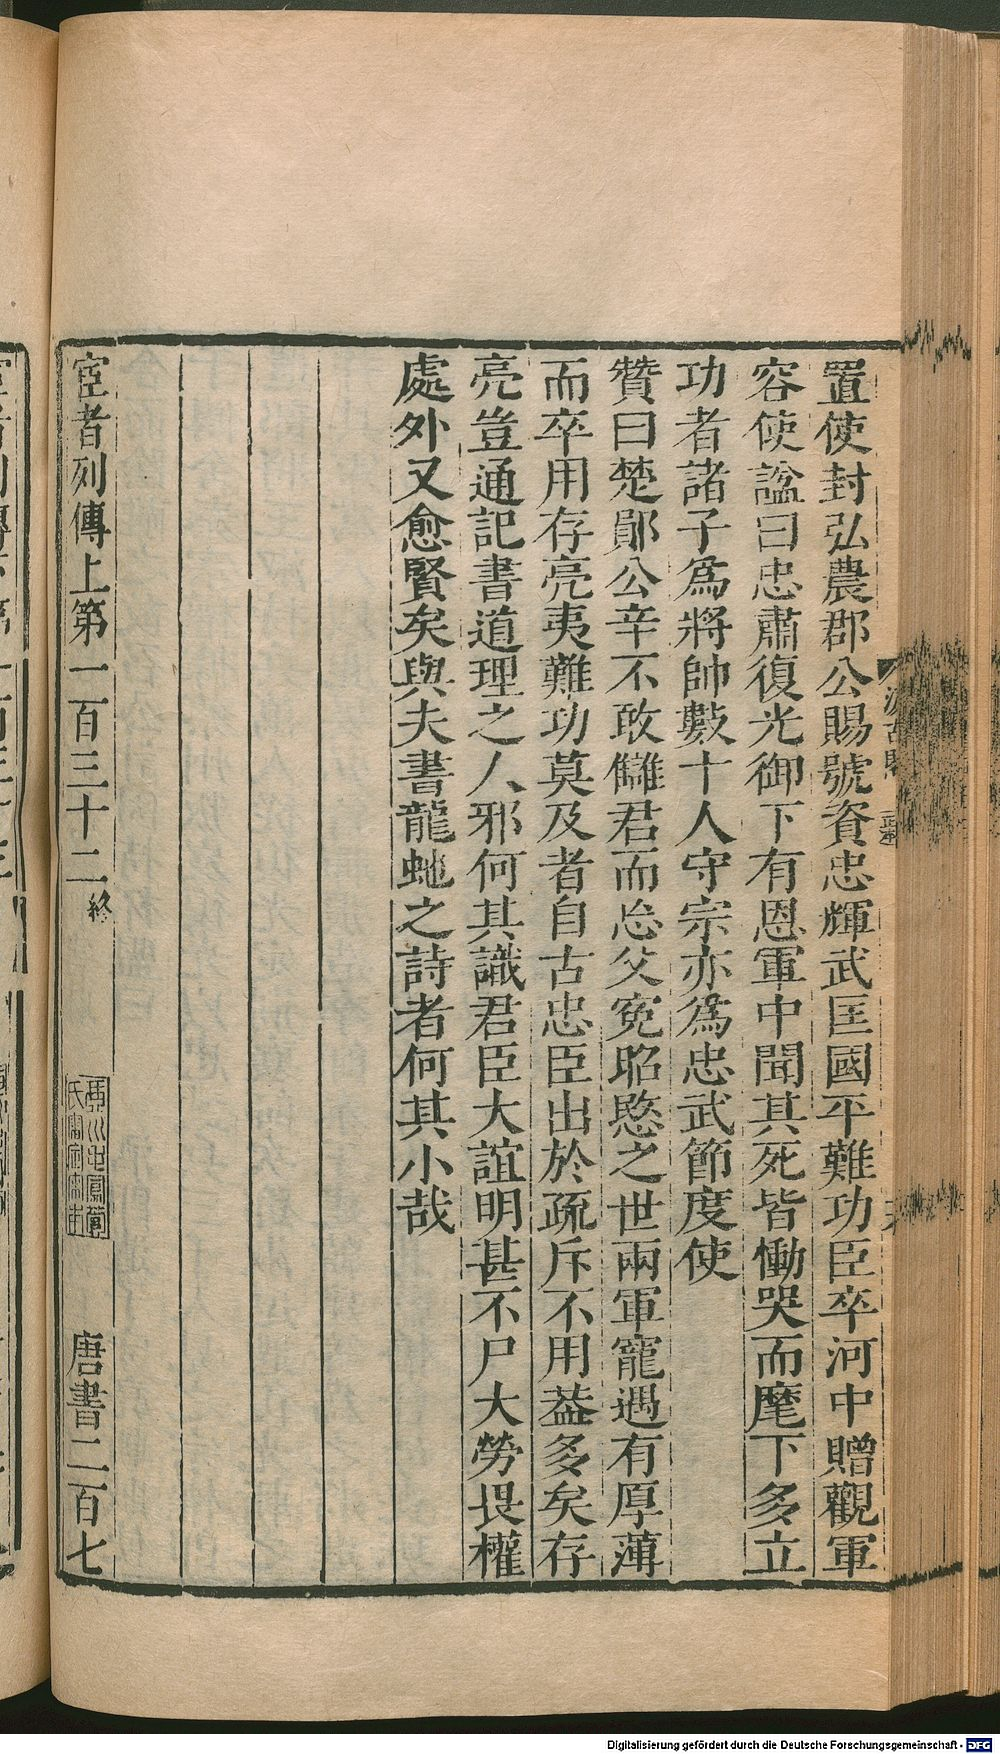 置使封弘農郡公賜號資忠輝武匡國平難功臣卒河中贈觀軍
容使諡曰忠肅復光御下有恩軍中聞其死皆慟哭而麾下多立
功者諸子爲將帥數十人守宗亦爲忠武節度使
贊曰楚鄖公辛不敢讎君而忘父冤昭愍之世兩軍寵遇有厚薄
而卒用存亮夷難功莫及者自古忠臣出於疏斥不用葢多矣存
亮豈通記書道理之人邪何其識君臣大誼明甚不尸大勞畏權
處外又愈賢矣與夫書龍虵之詩者何其小哉
宦者列傳上第一百三十二 終
唐書二百七
Digitalisierung gefördert durch die Deutsche Forschungsgemeinschaft - DFG